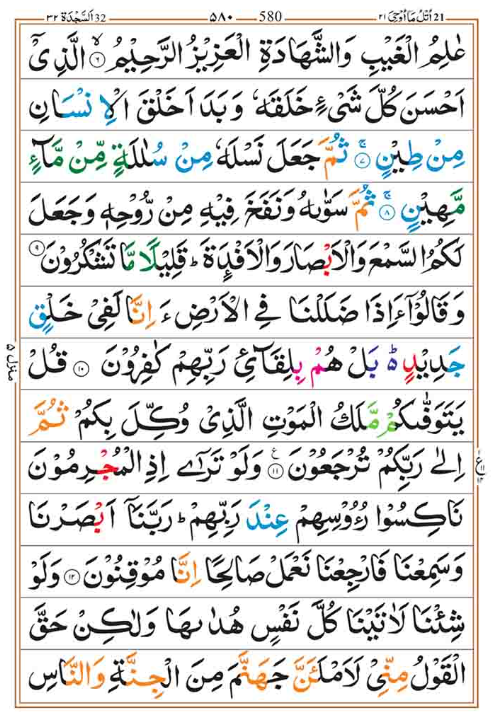 21 اُتْلُ مَآ اُوْحِیَ ٢١ 580 ٥٨٠ 32 اَلسَّجْدَة ٣٢
عٰلِمُ الْغَيْبِ وَالشَّهَادَةِ الْعَزِيْزُ الرَّحِيْمُ ۙ﴿٦﴾ الَّذِيْۤ
اَحْسَنَ كُلَّ شَیْءٍ خَلَقَهٗ وَبَدَاَ خَلْقَ الْاِنْسَانِ
مِنْ طِيْنٍ ۚ﴿٧﴾ ثُمَّ جَعَلَ نَسْلَهٗ مِنْ سُلٰلَةٍ مِّنْ مَّآءٍ
مَّهِيْنٍ ۚ﴿٨﴾ ثُمَّ سَوّٰىهُ وَنَفَخَ فِيْهِ مِنْ رُّوْحِهٖ وَجَعَلَ
لَكُمُ السَّمْعَ وَالْاَبْصَارَ وَالْاَفْـِٕدَةَ ؕ قَلِيْلًا مَّا تَشْكُرُوْنَ ﴿٩﴾
وَقَالُوْۤا ءَاِذَا ضَلَلْنَا فِي الْاَرْضِ ءَ اِنَّا لَفِيْ خَلْقٍ
جَدِيْدٍ ؕ۬ بَلْ هُمْ بِلِقَآئِ رَبِّهِمْ كٰفِرُوْنَ ﴿١٠﴾ قُلْ
يَتَوَفّٰىكُمْ مَّلَكُ الْمَوْتِ الَّذِيْ وُكِّلَ بِكُمْ ثُمَّ
اِلٰى رَبِّكُمْ تُرْجَعُوْنَ ﴿١١﴾ ع وَلَوْ تَرٰۤى اِذِ الْمُجْرِمُوْنَ
نَاكِسُوْا رُءُوْسِهِمْ عِنْدَ رَبِّهِمْ ؕ رَبَّنَاۤ اَبْصَرْنَا
وَسَمِعْنَا فَارْجِعْنَا نَعْمَلْ صَالِحًا اِنَّا مُوْقِنُوْنَ ﴿١٢﴾ وَلَوْ
شِئْنَا لَاٰتَيْنَا كُلَّ نَفْسٍ هُدٰىهَا وَلٰكِنْ حَقَّ
الْقَوْلُ مِنِّيْ لَاَمْلَـَٔنَّ جَهَنَّمَ مِنَ الْجِنَّةِ وَالنَّاسِ
منزل ٥